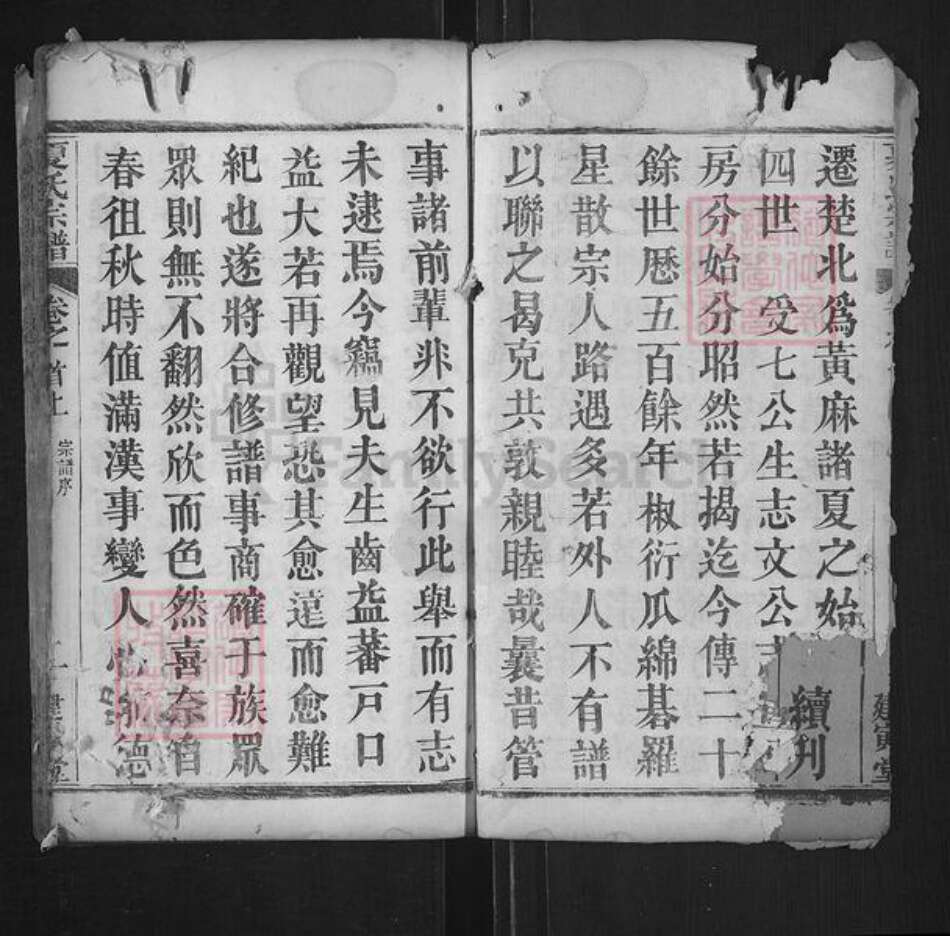 遷楚北爲黃麻諸夏之始
續刋
四世 受七公生志文公
房分始分昭然若揭迄今傳二十
餘世歷五百餘年椒衍瓜綿碁羅
星散宗人路遇多若外人不有譜
以聯之曷克共敦親睦哉曩昔管
事諸前輩非不欲行此舉而有志
未逮焉今竊見夫生齒益蕃戶口
益大若再觀望恐其愈遠而愈難
紀也遂將合修譜事商確于族眾
眾則無不翻然欣而色然喜奈自
春徂秋時值滿漢事變人
德
夏氏宗譜
卷之首上
宗譜序
二
建 堂
FamilySearch